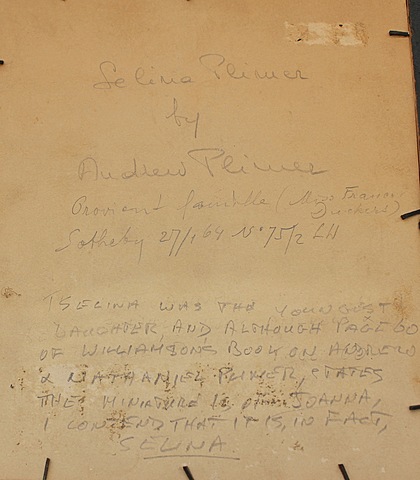 Selina Plimer
by
Andrew Plimer
Provient famille (Miss Francis
Sotheby 27/1 64 N° 75/2
SELINA WAS THE YOUNGEST
DAUGHTER, AND ALTHOUGH PAGE 60
OF WILLIAMSON'S BOOK ON ANDREW
& NATHANIEL PLIMER, STATES
THE MINIATURE IS JOANNA,
I CONTEND THAT IT IS, IN FACT,
SELINA.